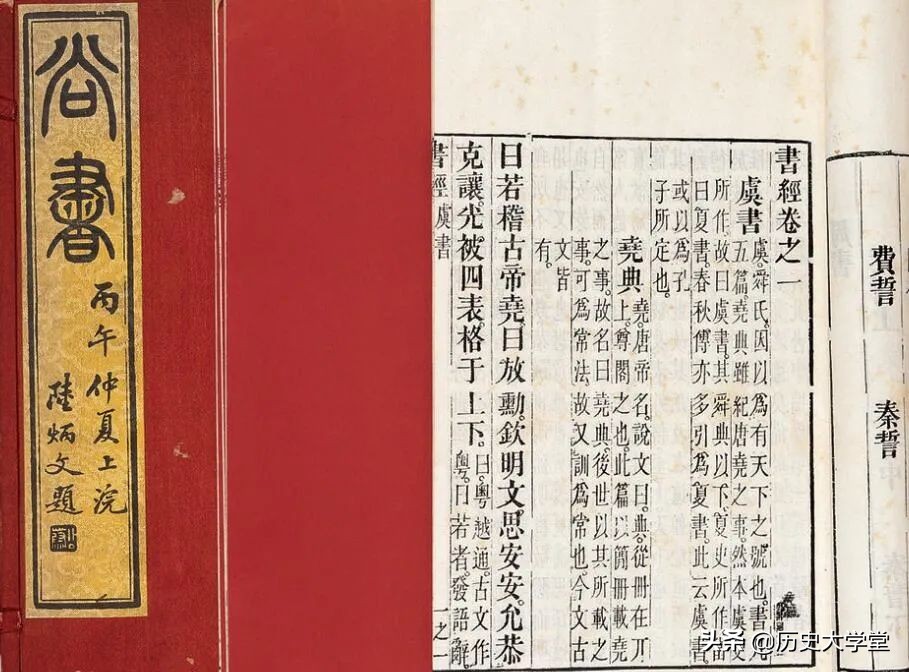 尚書
丙午仲夏上浣
陸炳文題
費誓
秦誓
書經卷之一
虞書
虞.舜氏.因以為有天下之號也.書凡
五篇.堯典雖紀唐堯之事.然本虞史
所作.故曰虞書.其舜典以下.夏史所作.當
曰夏書.春秋傳亦多引為夏書.此云虞書
或以為孔
子所定也.
堯典
堯.唐帝名.說文曰.典.從冊在丌
上.尊閣之也.此篇以簡冊載堯
之事.故名曰堯典.後世以其所載之
事.可為常法.故又訓為常也.今文古
文皆
有.
曰若稽古帝堯.曰放勳.欽明文思安安.允恭
克讓.光被四表.格于上下.
曰粵越通.古文作
粵.曰若者.發語辭
書經 虞書
一之一
头条 @历史大学堂